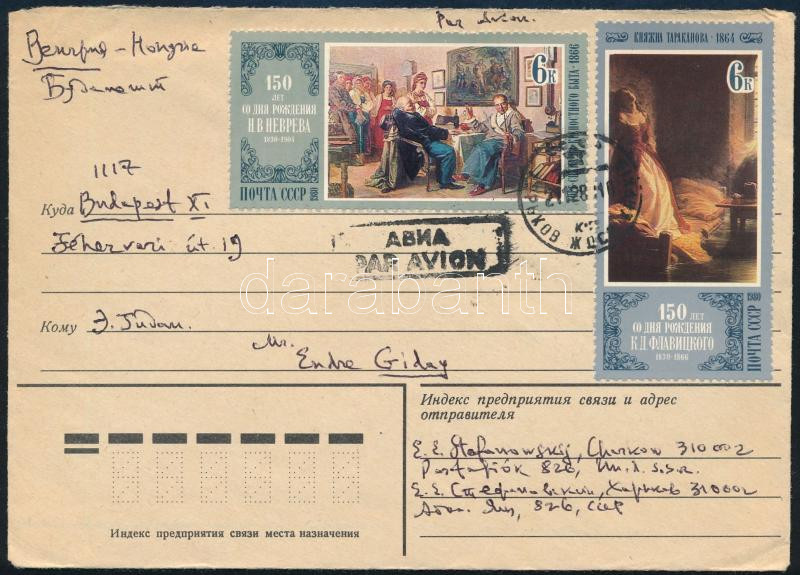 Par Avion.
Венгрия - Hongrie
Будапешт
1117
Куда Budapest XI
Fehérvári út 19
Кому Э. Гидаи.
Mr.
Endre Giday
150
ЛЕТ
СО ДНЯ РОЖДЕНИЯ
Н.В.НЕВРЕВА
1830-1904
ПОЧТА СССР 1980
6к
1866
КНЯЖНА ТАРАКАНОВА · 1864
6к
150 ЛЕТ
СО ДНЯ РОЖДЕНИЯ
К.Д.ФЛАВИЦКОГО
1830-1866
ПОЧТА СССР 1980
АВИА
PAR AVION
darabanth
Индекс предприятия связи и адрес
отправителя
E. E. Stefanowskij, Charkow 310002
Postafiók 826, U.d.S.S.R.
Е. Е. Стефановский, Харьков 310002
826, СССР
Индекс предприятия связи места назначения